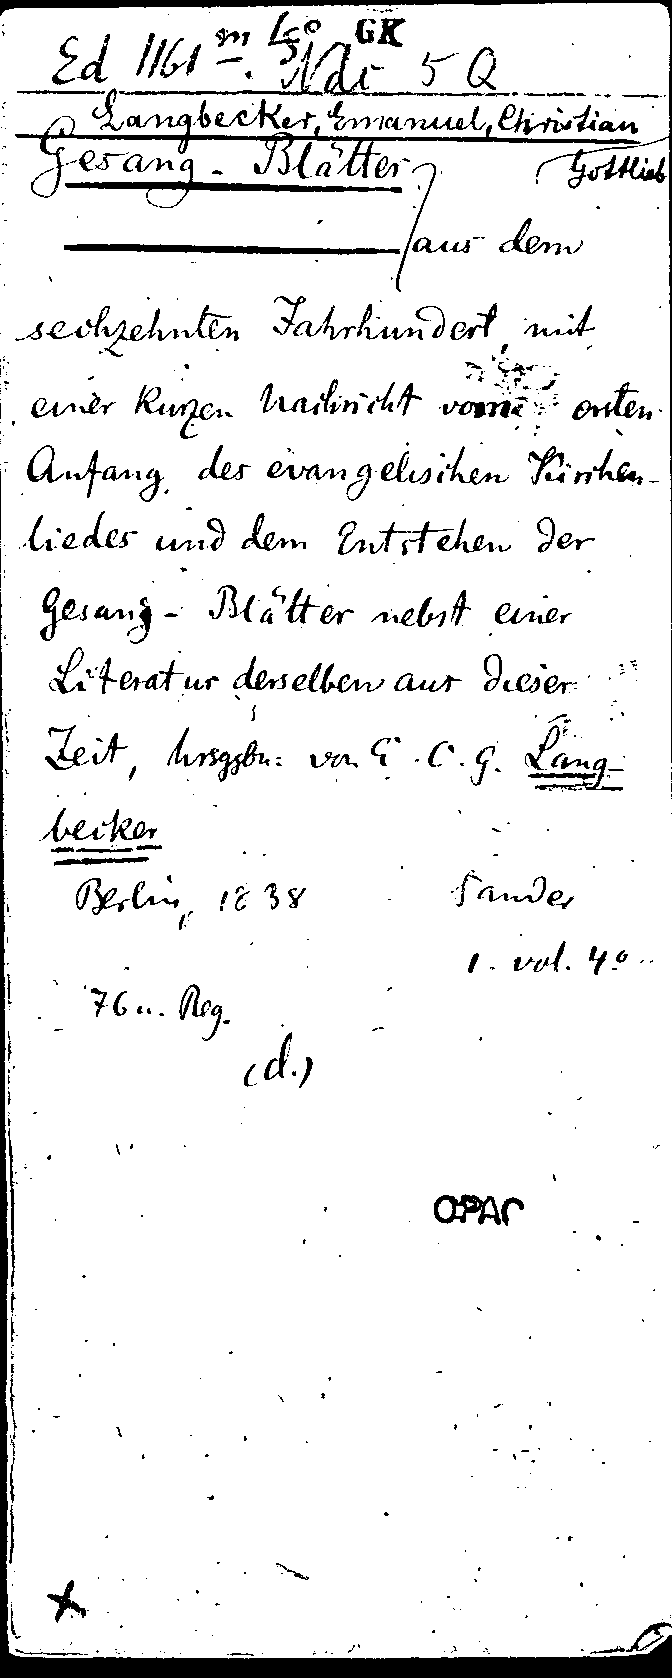 GK
Ed 1161 m 4o Ndr 5 Q
Langbecker, Emanuel, Christian
Gottlieb
Gesang-Blätter
aus dem
sechzehnten Jahrhundert, mit
einer kurzen Nachricht vom ersten
Anfang des evangelischen Kirchen-
liedes und dem Entstehen der
Gesang-Blätter nebst einer
Literatur derselben aus dieser
Zeit, hrsggbn. von E. C. G. Lang-
becker
Berlin, 1838 Sander
1. vol. 4o
76 u. Reg.
(d.)
OPAC